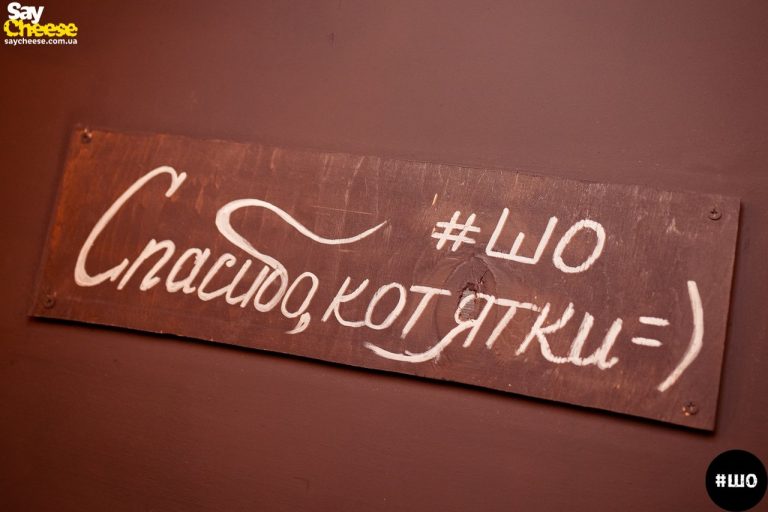 Say
Cheese
saycheese.com.ua
#ШО
Спасибо, котятки=)
#ШО